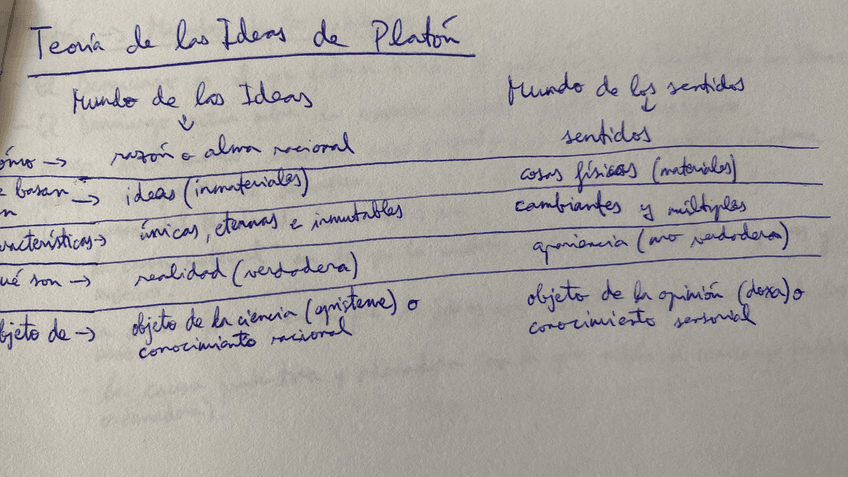 Teoría de las Ideas de Platón
Mundo de las Ideas Mundo de los sentidos
↓ ↓
ómo → razón o alma racional sentidos
e basan
n → ideas (inmateriales) cosas físicas (materiales)
aracterísticas → únicas, eternas e inmutables cambiantes y múltiples
ué son → realidad (verdadera) apariencia (no verdadera)
bjeto de → objeto de la ciencia (episteme) o objeto de la opinión (doxa) o
conocimiento racional conocimiento sensorial